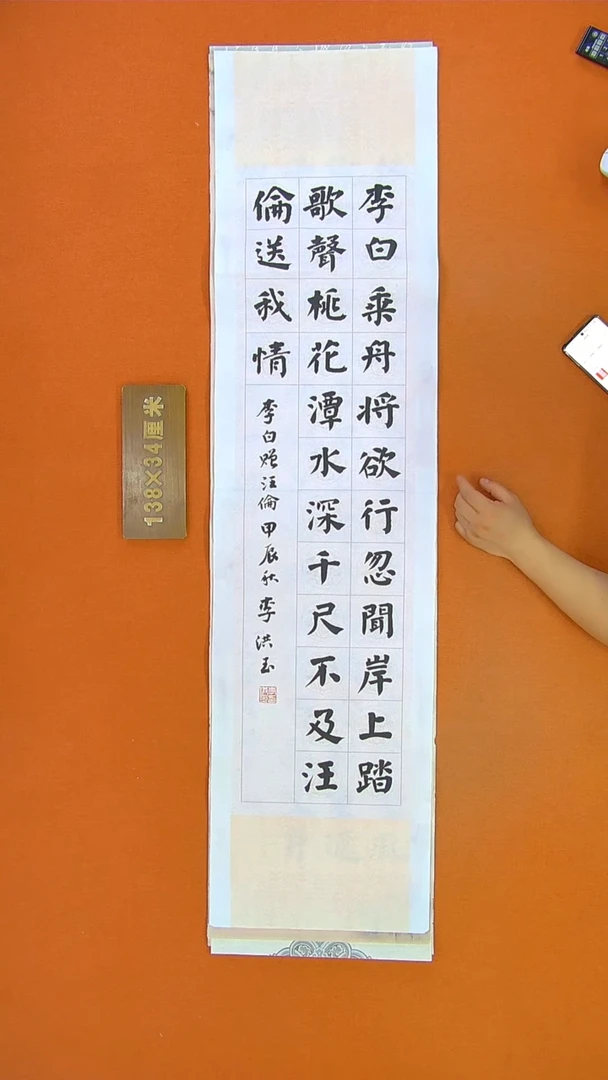 李白乘舟将欲行忽聞岸上踏
歌聲桃花潭水深千尺不及汪
倫送我情
李白赠汪倫甲辰秋李洪玉
138×34厘米